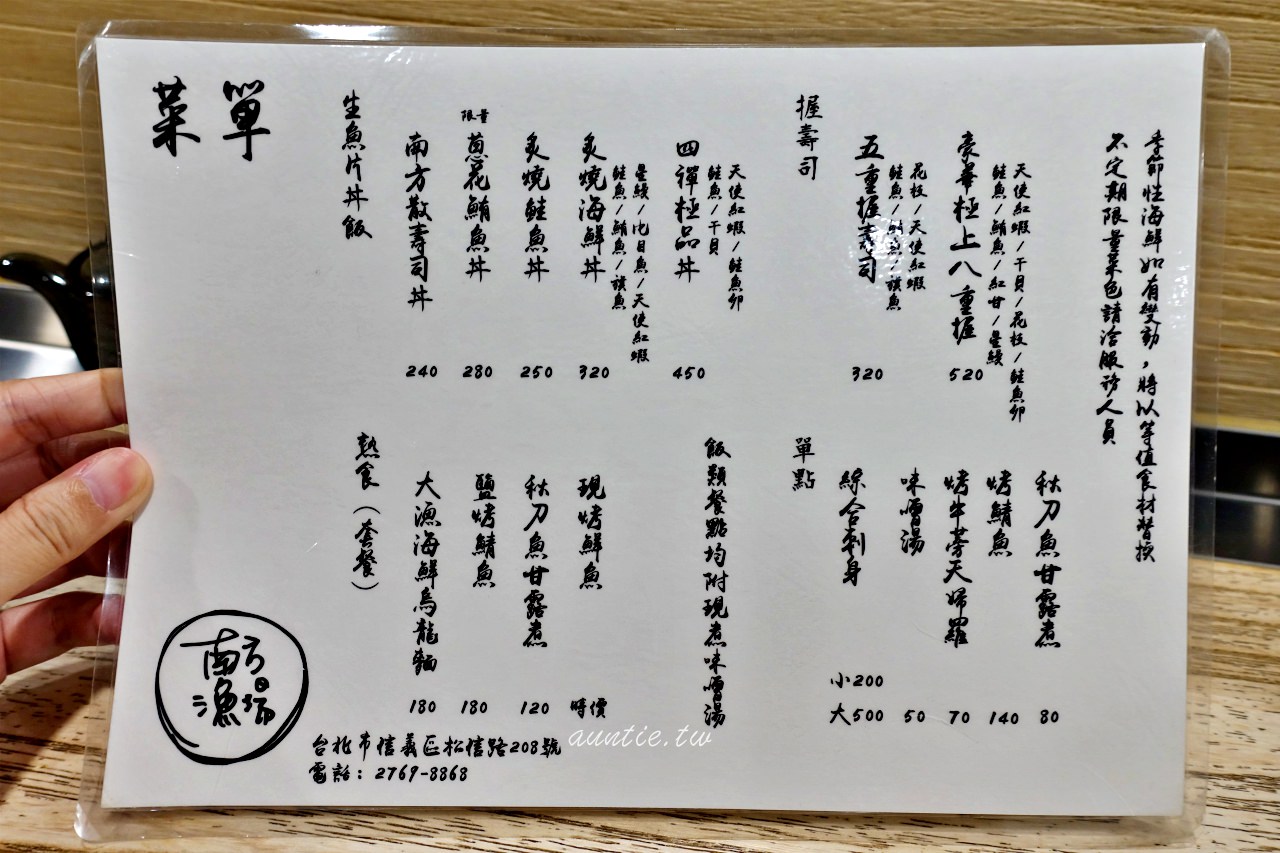 菜單
生魚片丼飯
南方散壽司丼 240
限量
蔥花鮪魚丼 280
炙燒鮭魚丼 250
炙燒海鮮丼 320
鮭魚/鮪魚/旗魚
星鰻/比目魚/天使紅蝦
四禪極品丼 450
鮭魚/干貝
天使紅蝦/鮭魚卵
握壽司
五重握壽司 320
鮭魚/鮪魚/旗魚
花枝/天使紅蝦
豪華極上八重握 520
鮭魚/鮪魚/紅甘/星鰻
天使紅蝦/干貝/花枝/鮭魚卵
不定期限量菜色請洽服務人員
季節性海鮮如有變動，將以等值食材替換
熱食（套餐）
大漁海鮮烏龍麵 180
鹽烤鯖魚 180
秋刀魚甘露煮 120
現烤鮮魚 時價
飯類餐點均附現煮味噌湯
單點
綜合刺身 小200
大500
味噌湯 50
烤牛蒡天婦羅 70
烤鯖魚 140
秋刀魚甘露煮 80
南方
漁場
台北市信義區松信路208號
電話：2769-8868
auntie.tw